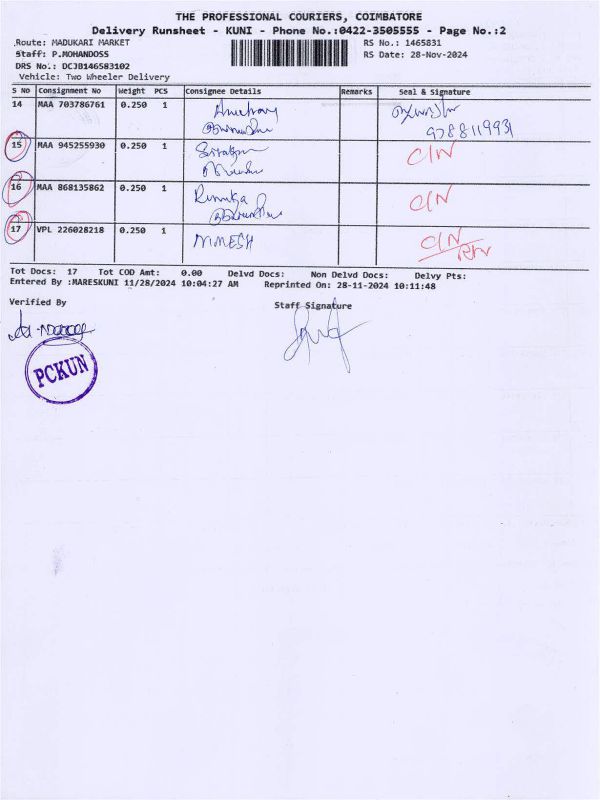 THE PROFESSIONAL COURIERS, COIMBATORE
Delivery Runsheet - KUNI - Phone No.:0422-3505555 - Page No.:2
Route: MADUKARI MARKET RS No.: 1465831
Staff: P.MOHANDOSS RS Date: 28-Nov-2024
DRS No.: DCJB146583102
Vehicle: Two Wheeler Delivery
S No Consignment No Weight PCS Consignee Details Remarks Seal & Signature
14 MAA 703786761 0.250 1
9788119931
15 MAA 945255930 0.250 1 C/N
16 MAA 868135862 0.250 1 Renuka C/N
17 VPL 226028218 0.250 1 NIMESH C/N
Tot Docs: 17 Tot COD Amt: 0.00 Delvd Docs: Non Delvd Docs: Delvy Pts:
Entered By :MARESKUNI 11/28/2024 10:04:27 AM Reprinted On: 28-11-2024 10:11:48
Verified By Staff Signature
PCKUN